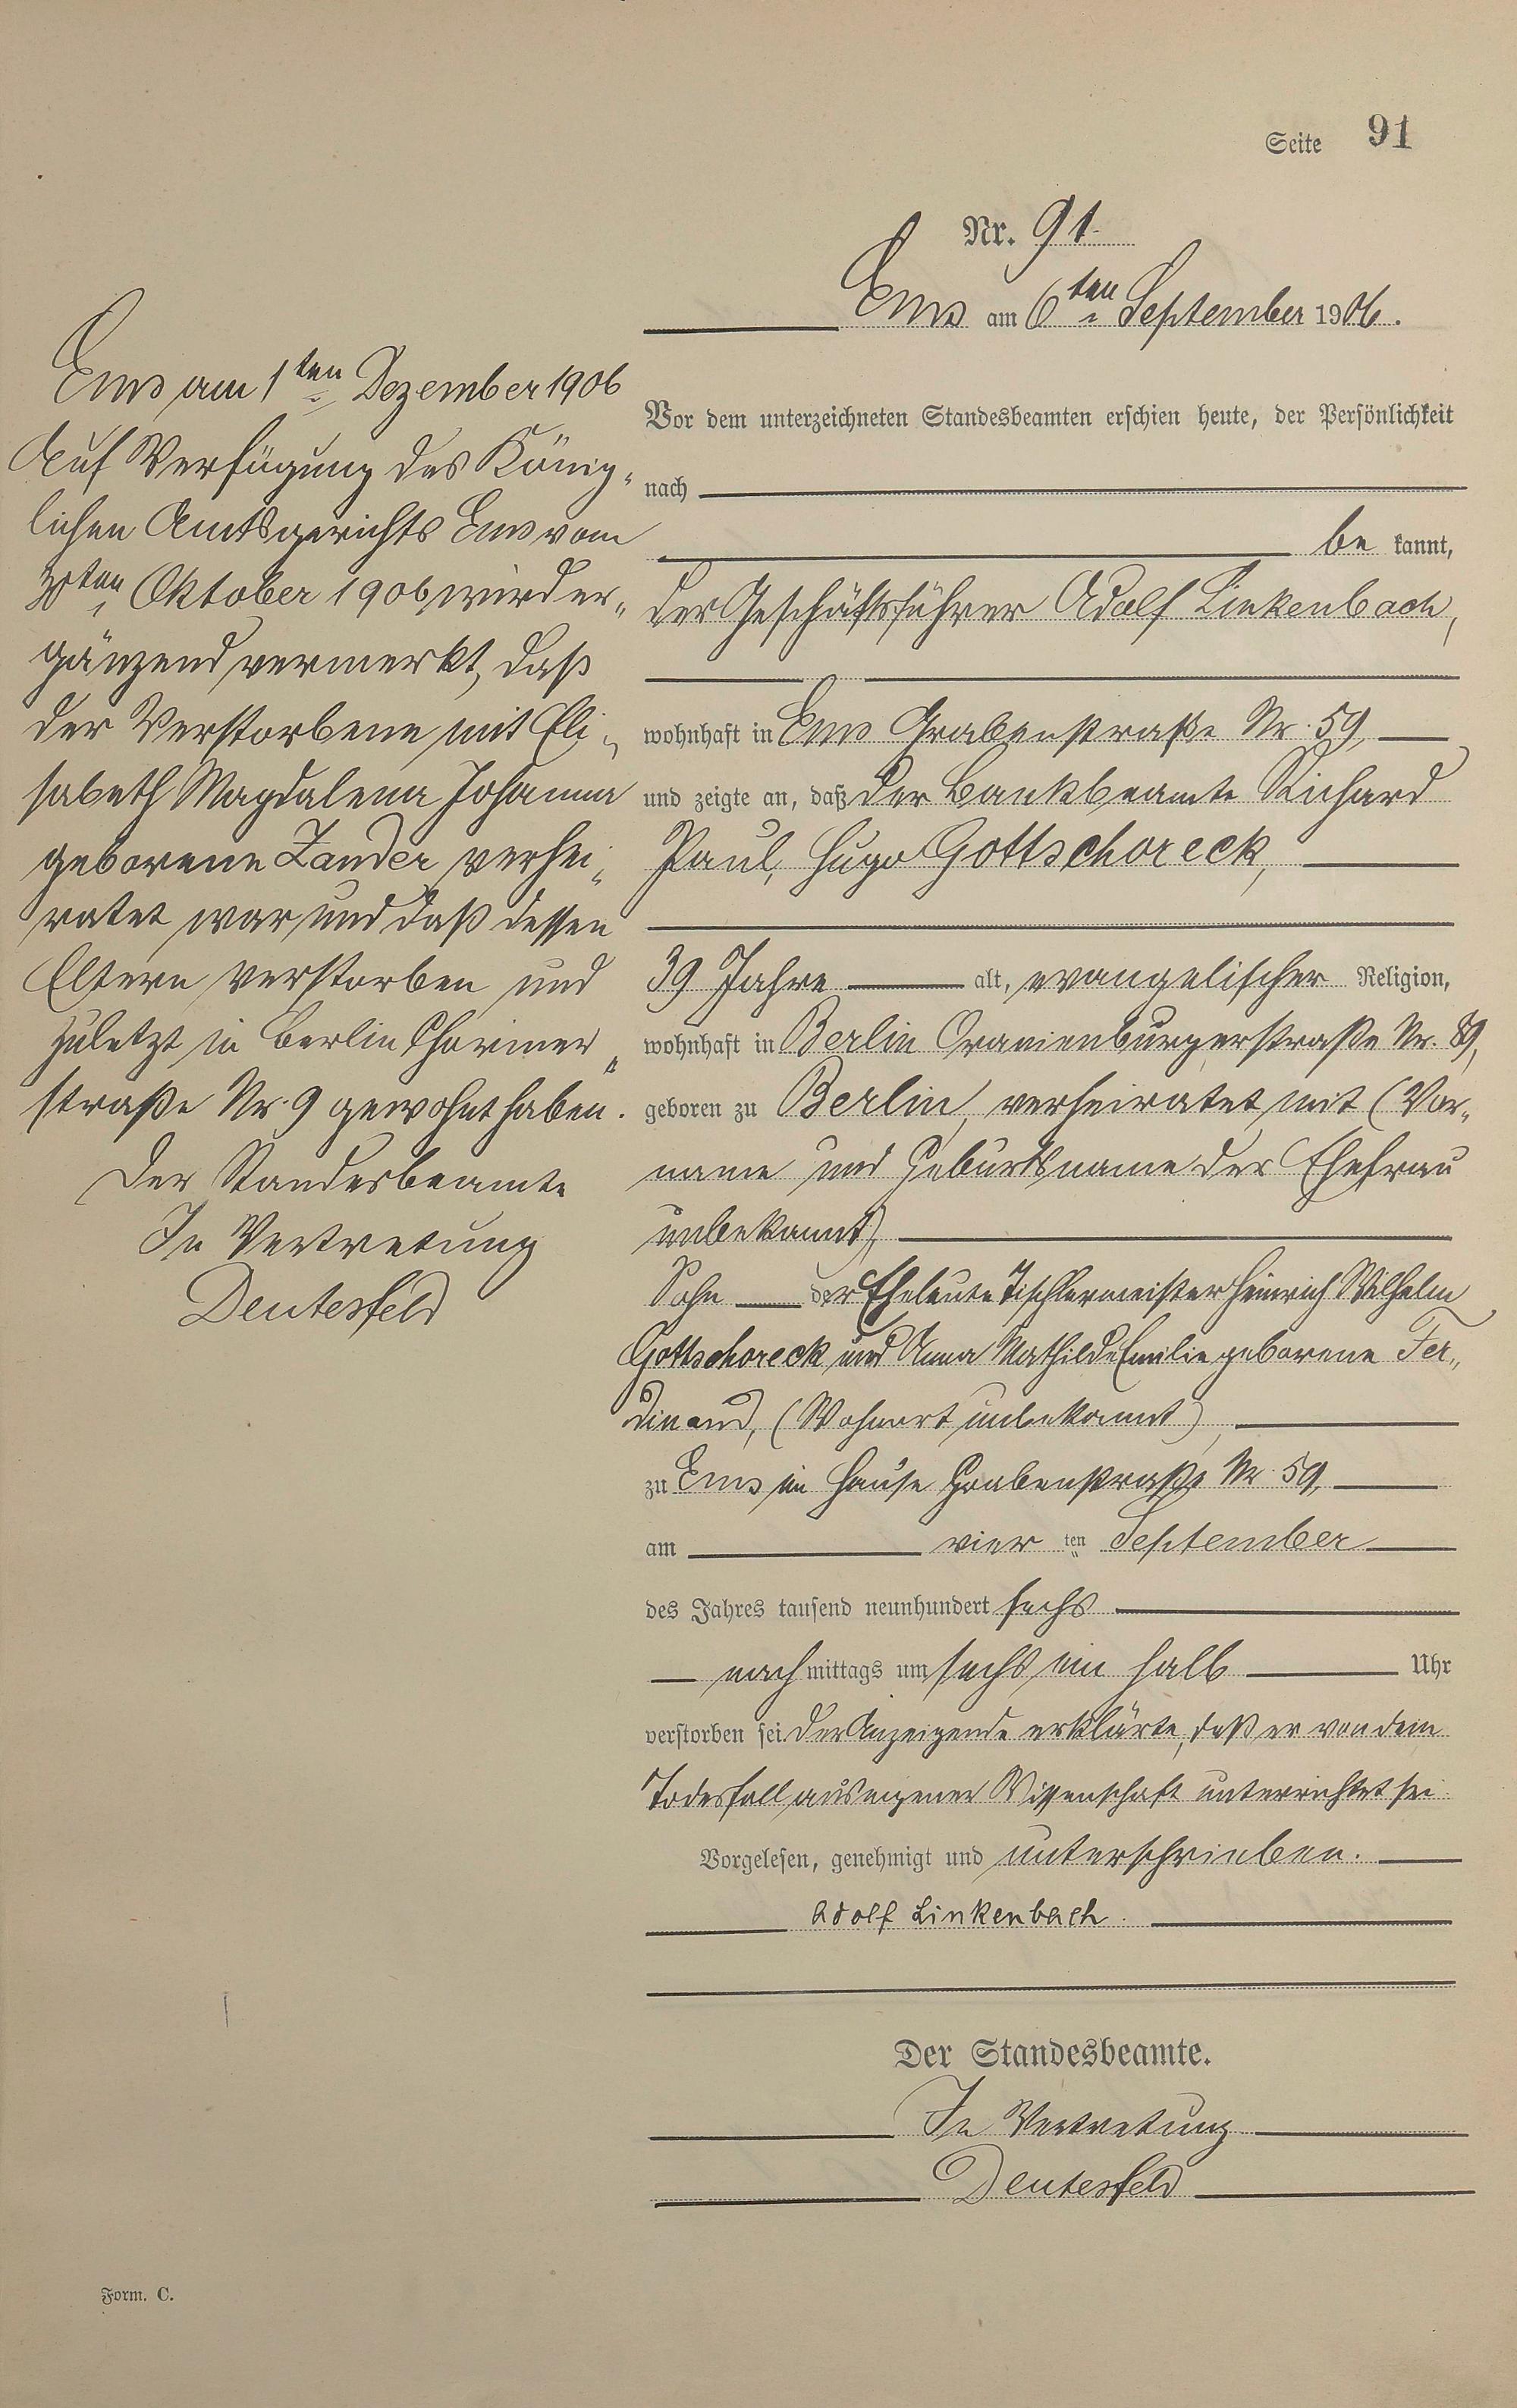 Seite 91
Nr. 91
Ems am 6ten September 1906.
Vor dem unterzeichneten Standesbeamten erschien heute, der Persönlichkeit
nach
be kannt,
der Geschäftsführer Adolf Linkenbach,
wohnhaft in Ems Grabenstraße Nr. 59,
und zeigte an, daß der Bankbeamte Richard
Paul, Hugo Gottschoreck,
39 Jahre alt, evangelischer Religion,
wohnhaft in Berlin Oranienburgerstraße Nr. 89,
geboren zu Berlin, verheiratet mit (Vor„
name und Geburtsname der Ehefrau
unbekannt),
Sohn der Eheleute Tischlermeister Heinrich Wilhelm
Gottschoreck und Anna Mathilde Emilie geborene Fer„
dinand, (Wohnort unbekannt),
zu Ems im Hause Grabenstraße Nr. 59,
am vier ten September
des Jahres tausend neunhundert sechs
nach mittags um sechs ein halb Uhr
verstorben sei. Der Anzeigende erklärte, daß er von dem
Todesfall aus eigener Wissenschaft unterrichtet sei.
Vorgelesen, genehmigt und unterschrieben.
Adolf Linkenbach.
Der Standesbeamte.
In Vertretung
Deutesfeld
Ems am 1ten Dezember 1906
Auf Verfügung des König„
lichen Amtsgerichts Ems vom
Oktober 1906 wird er„
gänzend vermerkt, daß
der Verstorbene mit Eli„
sabeth Magdalena Johanna
geborene Zander verhei„
ratet war und daß dessen
Eltern verstorben und
zuletzt in Berlin Choriner„
straße Nr. 9 gewohnt haben.
Der Standesbeamte
In Vertretung
Deutesfeld
Form. C.